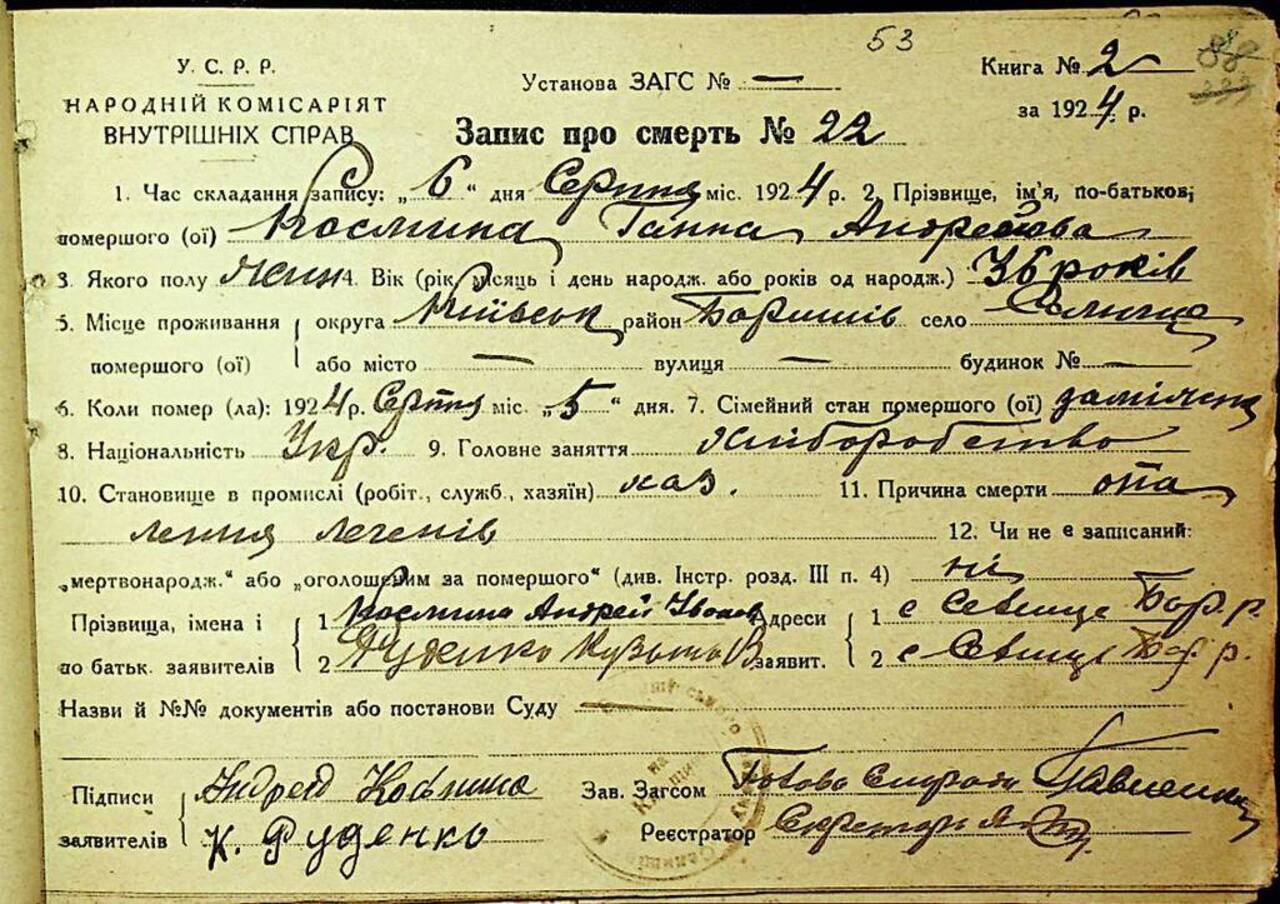 53
88
У. С. Р. Р.
НАРОДНІЙ КОМІСАРІЯТ
ВНУТРІШНІХ СПРАВ
Установа ЗАГС № —
Книга № 2
за 1924 р.
Запис про смерть № 22
1. Час складання запису: „6“ дня Серпня міс. 1924 р. 2, Прізвище, ім'я, по-батькові
помершого (ої) Космина Ганна Андреєва
3. Якого полу жен 4. Вік (рік, місяць і день народж. або років од народж.) 36 років
5. Місце проживання округа Київськ район Боришпів село
помершого (ої) або місто — вулиця — будинок № —
6. Коли помер (ла): 1924 р. Серпня міс. „5“ дня. 7. Сімейний стан помершого (ої)
8. Національність Укр. 9. Головне заняття Хліборобство
10. Становище в промислі (робіт., служб., хазяїн) хаз. 11. Причина смерти опа
лення легенів 12. Чи не є записаний:
„мертвонародж.“ або „оголошеним за помершого“ (див. Інстр. розд. III п. 4) ні
Прізвища, імена і 1 Космина Андрей Іванов Адреси 1 с Бор. р.
по батьк. заявителів 2 Руденко Кузьма заявит. 2 с Бор р.
Назви й №№ документів або постанови Суду —
Підписи Андрей Космина Зав. Загсом Голова
заявителів К. Руденко Реєстратор Секретарь